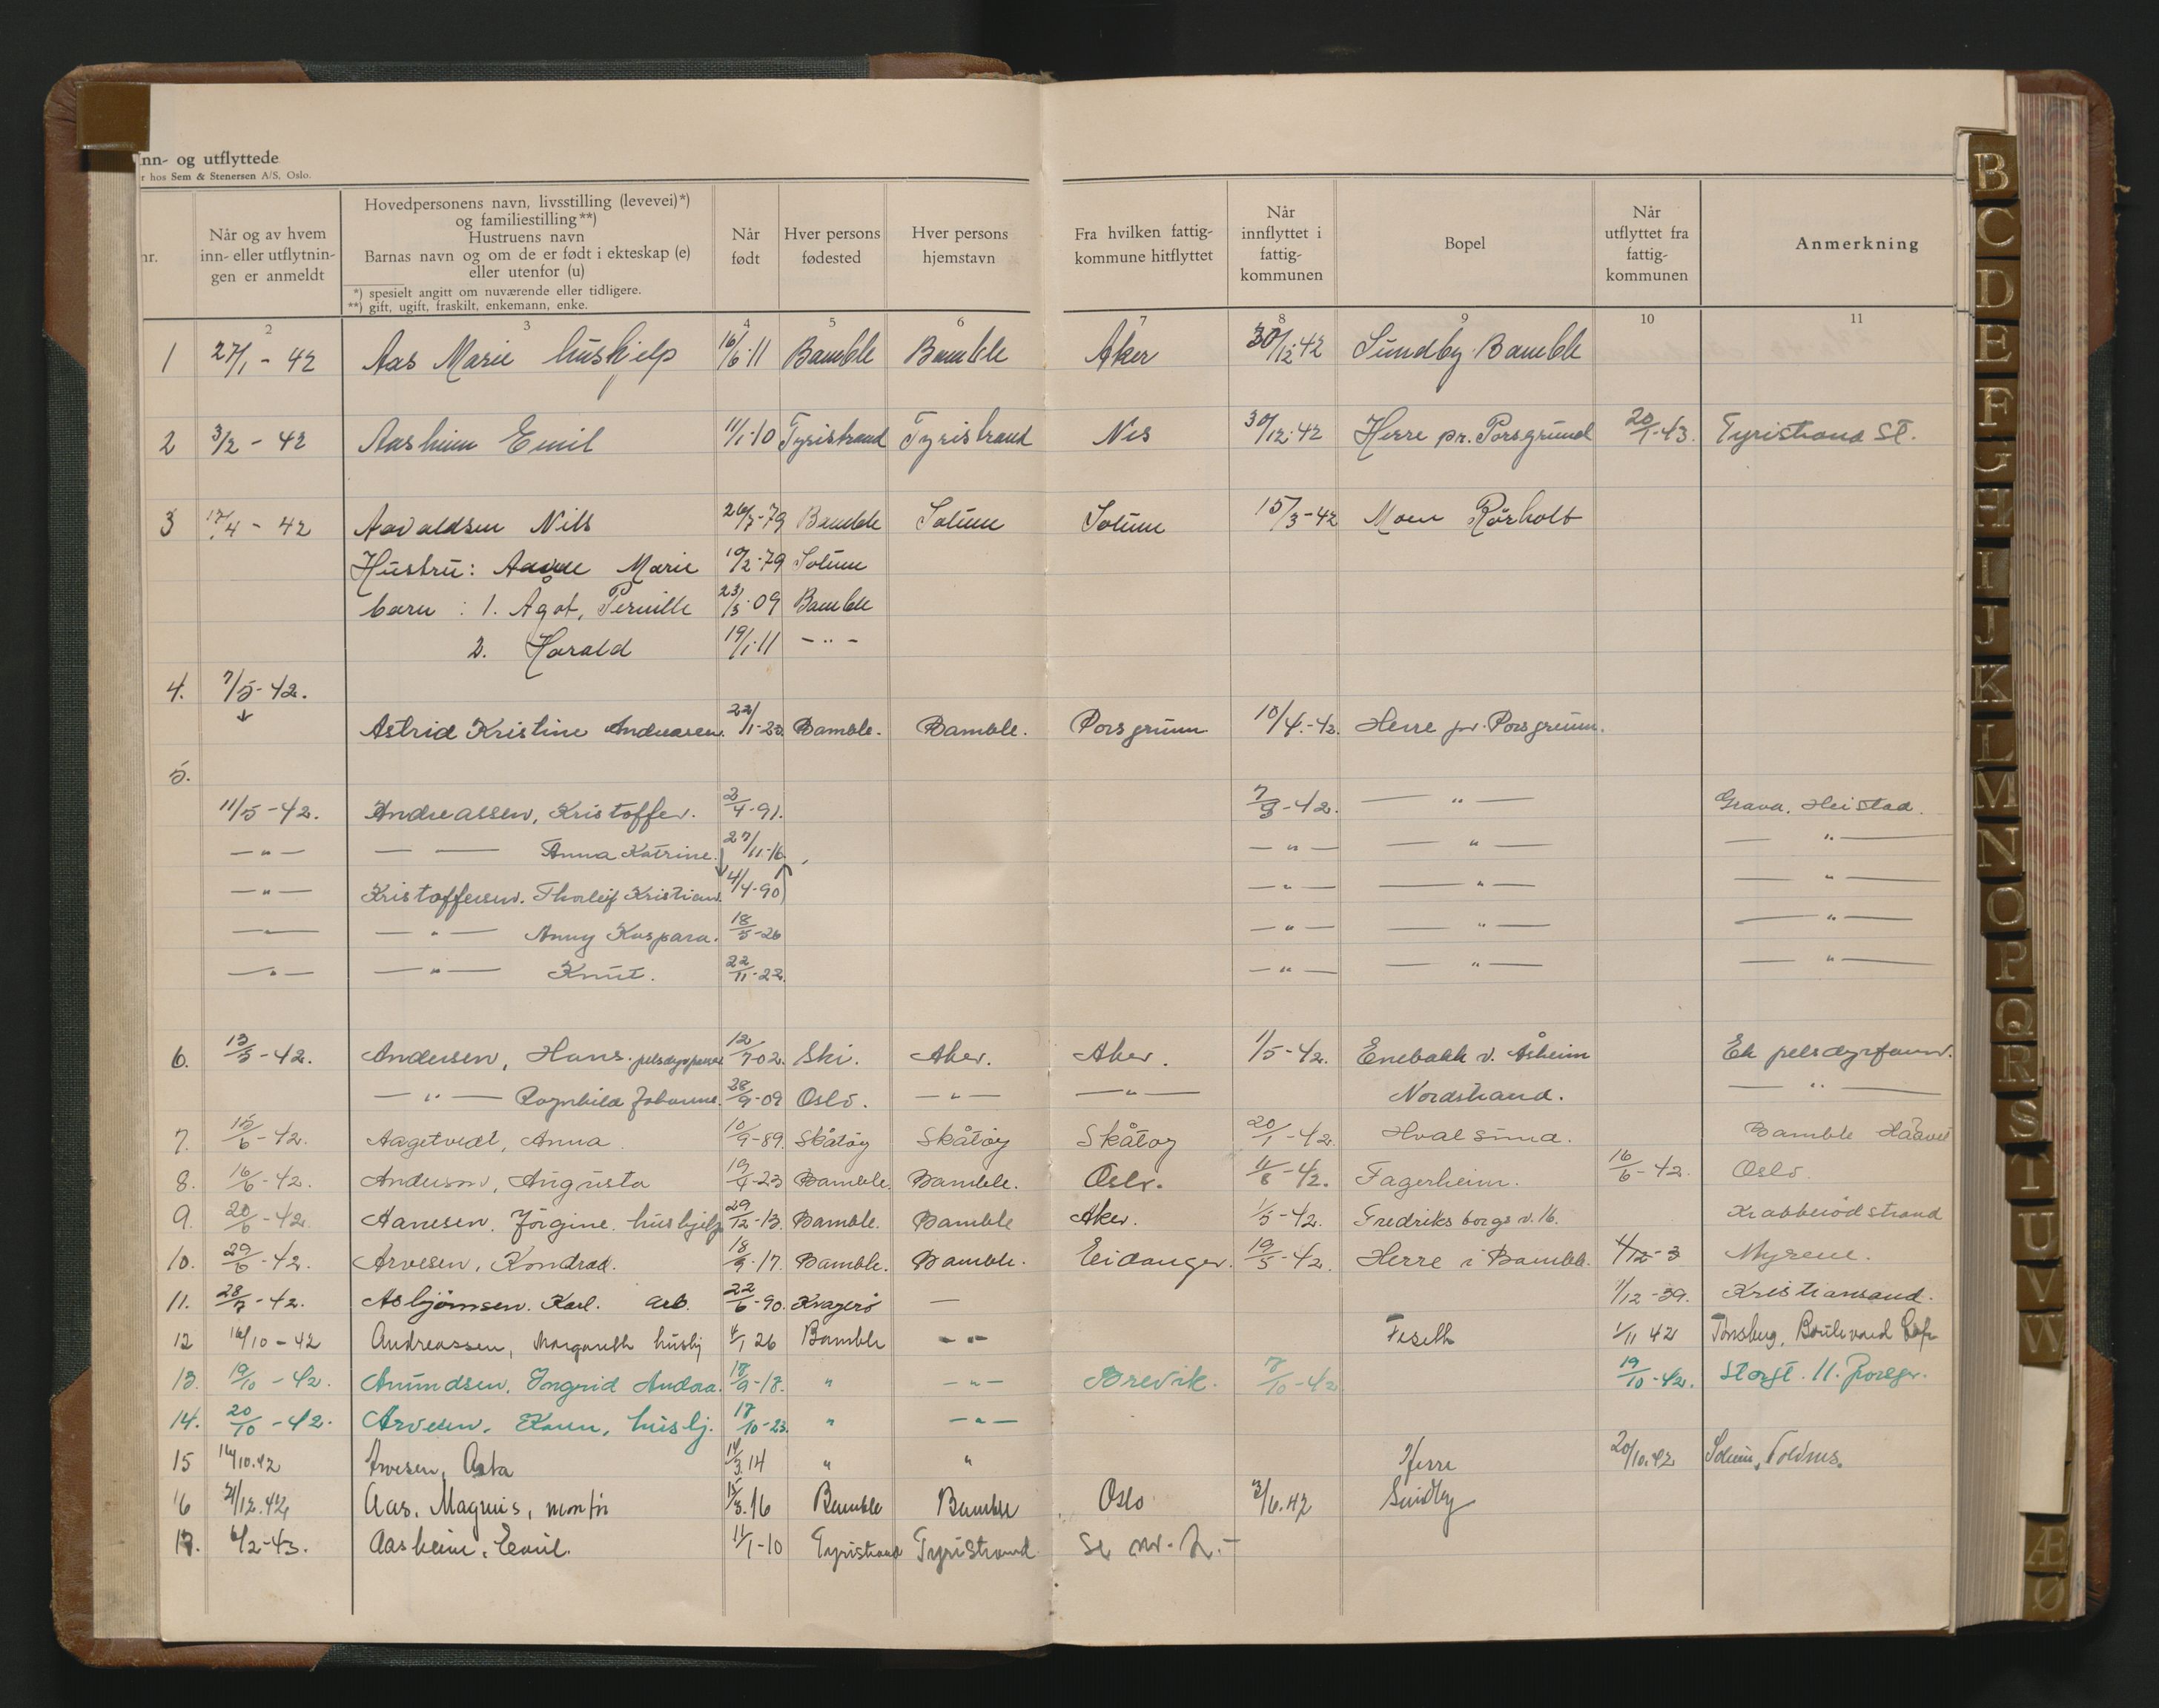 nn- og utflyttede
r hos Sem & Stenersen A/S, Oslo.
nr.
Når og av hvem
inn- eller utflytnin-
gen er anmeldt
Hovedpersonens navn, livsstilling (levevei)*)
og familiestilling**)
Hustruens navn
Barnas navn og om de er født i ekteskap (e)
eller utenfor (u)
*) spesielt angitt om nuværende eller tidligere.
**) gift, ugift, fraskilt, enkemann, enke.
Når
født
Hver persons
fødested
Hver persons
hjemstavn
Fra hvilken fattig-
kommune hitflyttet
Når
innflyttet i
fattig-
kommunen
Bopel
Når
utflyttet fra
fattig-
kommunen
Anmerkning
2 3 4 5 6 7 8 9 10 11
1 27/1 - 42 Aas Marie hushjelp 16/6-11 Bamble Bamble Aker 30/12-42 Sundby Bamble
2 3/2 - 42 Aasheim Emil 11/1-10 Tyristrand Tyristrand Nes 30/12-42 Herre pr. Porsgrund 20/1-43. Tyristrand St.
3 17/4 - 42 Aavaldsen Nils 26/7-79 Bamble Solum Solum 15/3-42 Moen Rörholt
Hustru: Marie 10/2-79 Solum
barn : 1. Ågot, Pernille 23/3-09 Bamble
2. Harald 19/1-11 - " -
4. 7/5-42.
Astrid Kristine Andreasen. 22/1-23. Bamble. Bamble. Porsgrunn 10/4.-42. Herre pr. Porsgrunn.
5.
11/5-42. Andreassen, Kristoffer. 2/4-91. 7/3-42. — " — Grava. Heistad.
— " — — — Anna Katrine. 27/11-16. — " — — " — — " —
— " — Kristoffersen. Thorleif Kristian. 4/4-90 — " — — " — — " —
— " — — " — Anny Kaspara. 18/5-26 — " — — " — — " —
— " — — " — Knut. 22/11-22. — " — — " — — " —
6. 13/5-42. Andersen, Hans. pelsdyrpasser 12/7-02. Ski. Aker. Aker. 1/5-42. Enebakk v. Åsheim Ek pelsdyrfarm.
— " — Ragnhild Johanne. 28/9-09 Oslo. — " — — " — Nordstrand. — " —
7. 15/6-42. Aagetvedt, Anna. 10/9-89. Skåtöy Skåtöy Skåtöy 20/1-42. Hvalsund. Bamble
8. 16/6-42. Anderson, Augusta 19/4-23 Bamble. Bamble. Oslo. 11/8-42. Fagerheim. 16/6-42. Oslo.
9. 20/6-42. Hansen. Jörgine. hushjelp 29/12-13. Bamble. Bamble Aker. 1/5-42. Fredriksborgv. 16. Krabberödstrand
10. 29/6-42. Arvesen, Kondrad. 18/9-17. Bamble. Bamble. Eidanger. 19/5-42. Herre i Bamble. 4/12-3 Myrene.
11. 28/7-42. Asbjörnsen. Karl. arb. 22/6-90. Kragerö — 1/12-39. Kristiansand.
12 16/10-42 Andreassen, Margareth hushj 4/1 26 Bamble - " - Feseth 1/11 42 Tönsberg, Boulevard
13. 19/10-42. Amundsen, Ingrid Andora. 18/9-18. " - " - Brevik. 7/10-42 19/10-42. Storgt. 11. Porsgr.
14. 20/10-42. Arvesen, Karin, hushj. 17/10-23. " - " -
15 14/10.42 Arvesen, Asta 14/3.14 " " Herre 20/10.42 Solum,
16 31/12.42, Aas, Magnus, montör 15/3.16 Bamble Bamble Oslo 3/6.42 Sundby
17. 6/2-43. Aasheim, Emil. 11/1-10 Tyristrand Tyristrand. se nr. 2.-
B
C
D
E
F
G
H
I
J
K
L
M
N
O
P
Q
R
S
T
U
V
W
Æ
Ø